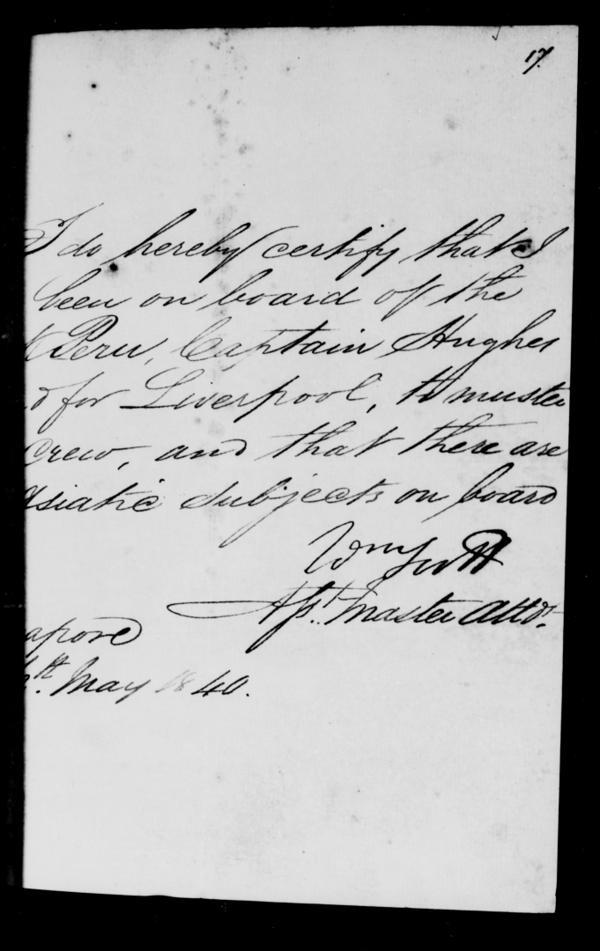 17.
I do hereby certify that I
been on board of the
Peru, Captain Hughes
for Liverpool, to muster
Crew, and that there are
Asiatic Subjects on board
Wm Scott
Asst. Master Attdt.
apore
th. May 1840.